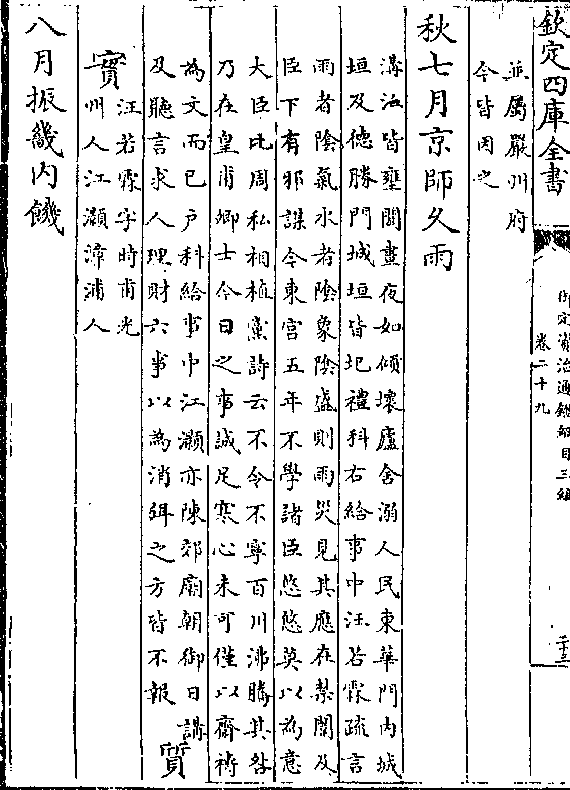 欽定四庫全書
御定資治通鑑綱目三編
卷二十九
二十三
並屬嚴州府
今皆因之
秋七月京師久雨
溝洫皆壅閼晝夜如傾壞廬舍溺人民東華門内城
垣及德勝門城垣皆圮禮科右給事中汪若霖疏言
雨者陰氣水者陰象陰盛則雨災見其應在禁闥及
臣下有邪謀今東宫五年不學諸臣悠悠莫以為意
大臣比周私相植黨詩云不令不寧百川沸騰其咎
乃在皇甫卿士今日之事誠足寒心未可僅以齋禱
為文而已户科給事中江灝亦陳郊廟朝御日講
及聽言求人理財六事以為消弭之方皆不報質
實汪若霖字時甫光
州人江灝漳浦人
八月振畿内饑